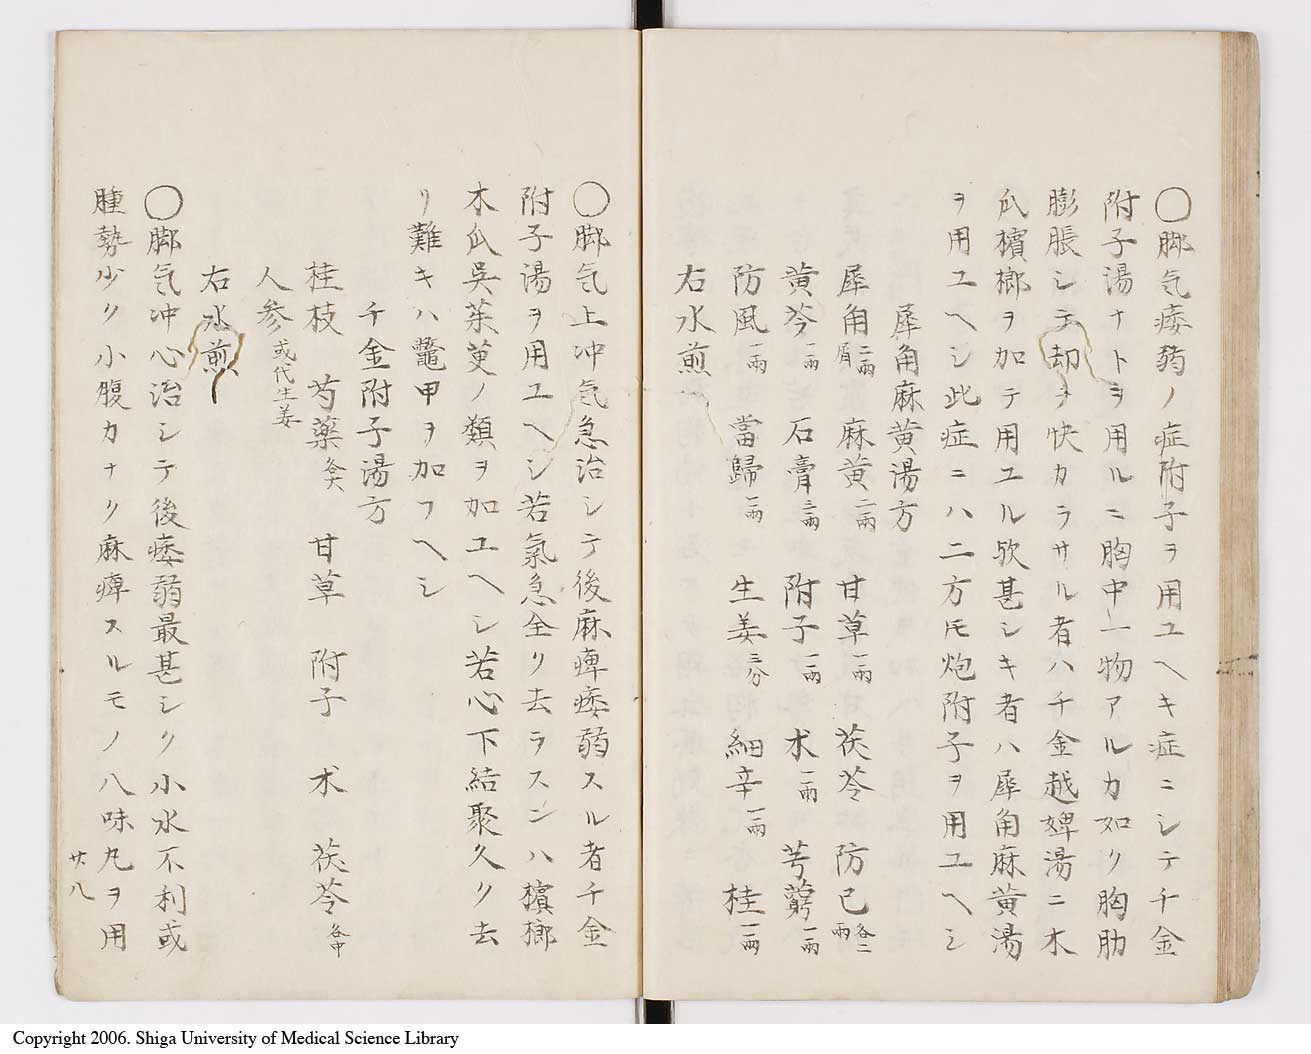 〇脚气痿弱ノ症附子ヲ用ユヘキ症ニシテ千金
附子湯ナトヲ用ルニ胸中一物アルカ如ク胸肋
膨脹シテ却テ快カラサル者ハ千金越婢湯ニ木
瓜檳榔ヲ加テ用ユル欤甚シキ者ハ犀角麻黄湯
ヲ用ユヘシ此症ニハ二方𪜈炮附子ヲ用ユヘシ
犀角麻黄湯方
犀角二兩屑 麻黄二兩 甘草一兩 茯苓 防已各二兩
黄芩一兩 石膏三兩 附子一兩 朮一兩 芎藭一兩
防風一兩 當歸一兩 生姜三分 細辛一兩 桂一兩
右水煎
〇脚气上冲气急治シテ後麻痺痿弱スル者千金
附子湯ヲ用ユヘシ若氣急全ク去ラスンハ檳榔
木瓜呉茱萸ノ類ヲ加ユヘシ若心下結聚久ク去
リ難キハ鼈甲ヲ加フヘシ
千金附子湯方
桂枝 芍薬各大 甘草 附子 朮 茯苓各中
人参或代生姜
右水煎
〇脚气冲心治シテ後痿弱最甚シク小水不利或
腫勢少ク小腹カナク麻痺スルモノ八味丸ヲ用
廿八
Copyright 2006. Shiga University of Medical Science Library